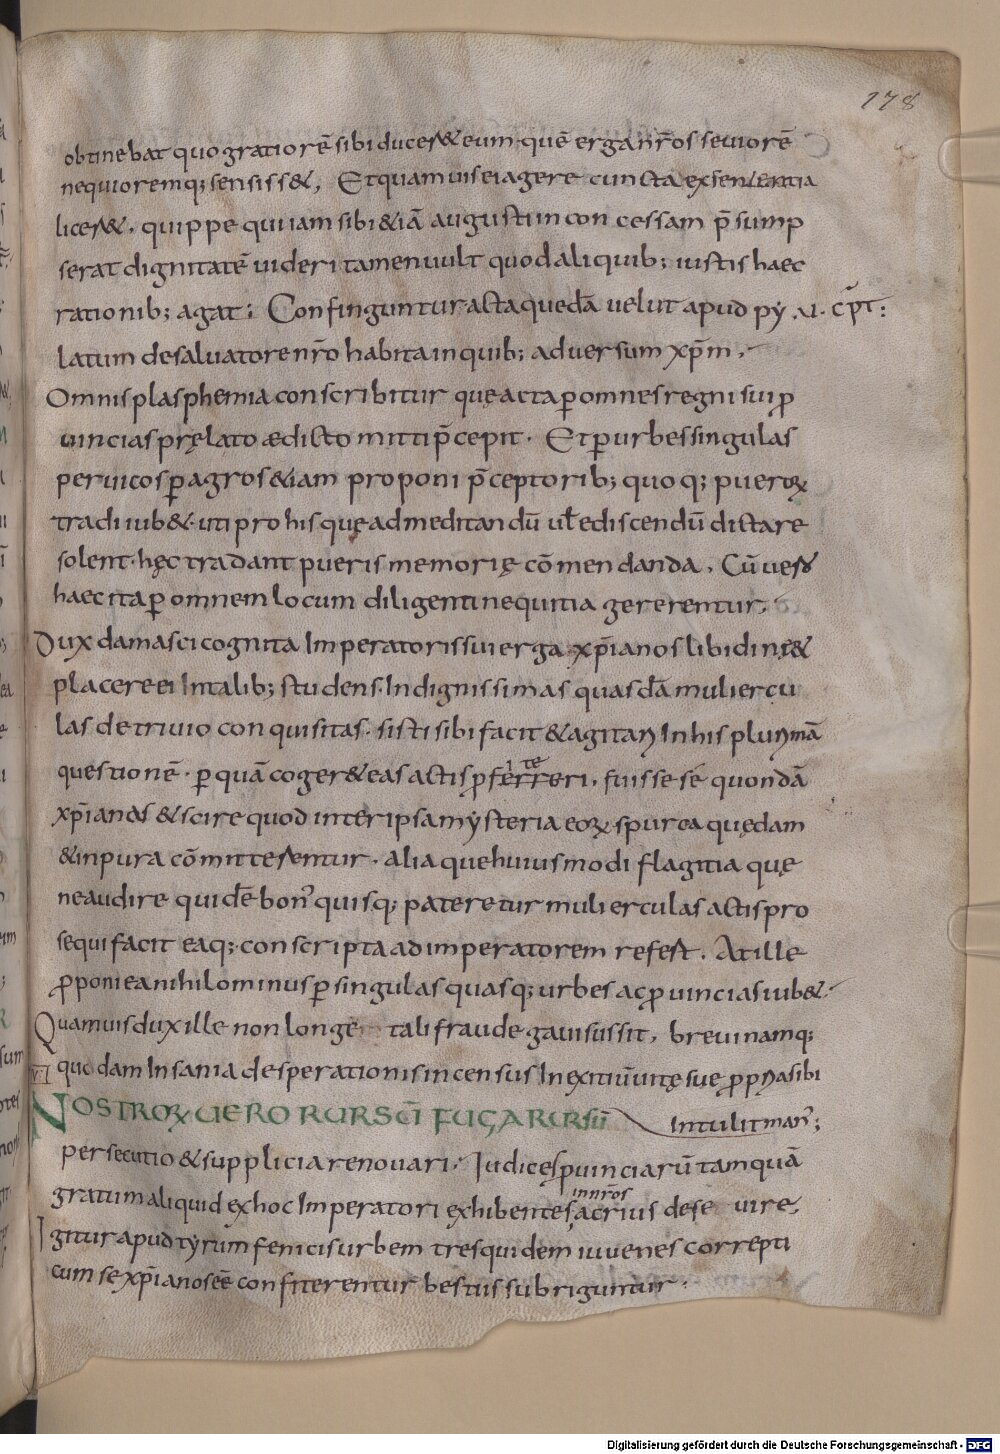 178
obtinebat quo gratiorē sibi ducer& eum quē erga nr̄os seuiorē
nequioremq; sensiss&, Et quamuis ei agere cuncta ex sententia
licer&. quippe qui iam sibi &iā augusti inconcessam p̄sump
serat dignitatē uideri tamen uult quod aliquib; iustis haec
rationib; agat; Confinguntur acta quedā uelut apud py .VI. cp̄t:
latum de saluatore nr̄o habita in quib; aduersum xp̄m.
Omnis plasphemia conscribitur quę acta ꝑ omnes regni sui ꝓ
uincias pręlato ædicto mitti p̄cepit. Et ꝑ urbes singulas
per uicos ꝑ agros &iam proponi p̄ceptorib; quoq; pueroꝝ
tradi iub&. uti pro his quę ad meditandū ul̄ ediscendū dictare
solent. hęc tradant pueris memorię cōmendanda. Cū uero
haec ita ꝑ omnem locum diligenti nequitia gererentur.
Dux damasci cognita Imperatoris sui erga xp̄ianos libidinę &
placere ei In talib; studens. Indignissimas quasdā muliercu
las de triuio conquisitas. sisti sibi facit & agitari In his plurimā
questionē. ꝑ quā coger& eas actis ꝓferreri. fuisse se quondā
ite
xp̄ianas & scire quod inter ipsa mẏsteria eoꝝ spurca quędam
& inpura cōmitterentur. alia que huiusmodi flagitia quę
ne audire quidē bon᾽ quisq; pateretur mulierculas actis pro
sequi facit eaq; conscripta ad imperatorem refert. At ille
ꝓponi ea nihilominus ꝑ singulas quasq; urbes ac ꝓuincias iub&.
Quamuis dux ille non longe tali fraude gauisus sit, breui namq;
quodam Insania desperationis incensus In exitiū uitę sue ꝓpria sibi
VI
NOSTROꝜ UERO RURSŪ FUGA RURSŪ Intulit man᾽;
persecutio & supplicia renouari. Iudices ꝓuinciarū tamquā
gratum aliquid ex hoc Imperatori exhibentes, acrius deseuire,
in nr̄os
Igitur apud tẏrum fenicis urbem tres quidem iuuenes correpti
cum se xp̄ianos eē confiterentur bestiis subriguntur.
Digitalisierung gefördert durch die Deutsche Forschungsgemeinschaft - DFG